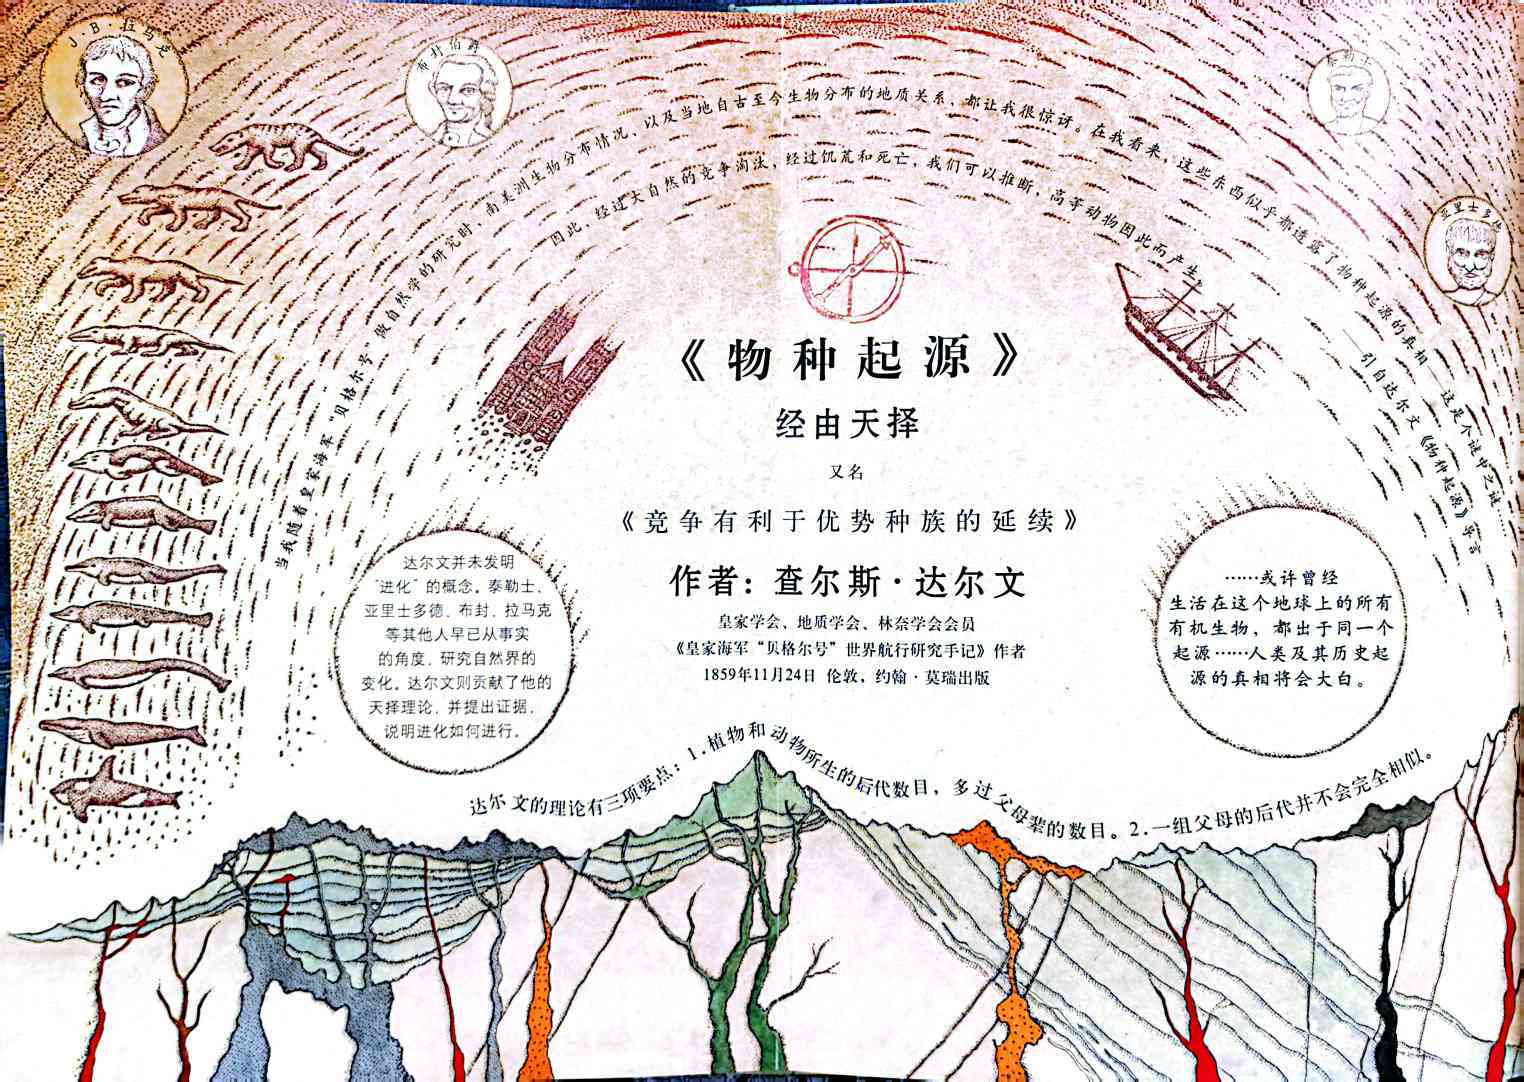 J·B·拉马克
布封伯爵
泰勒士
亚里士多德
当我随着皇家海军“贝格尔号”做自然学的研究时，南美洲生物分布情况、以及当地自古至今生物分布的地质关系，都让我很惊讶。在我看来，这些东西似乎都透露了物种起源的真相——这是个谜中之谜
因此，经过大自然的竞争淘汰，经过饥荒和死亡，我们可以推断，高等动物因此而产生。
——引自达尔文《物种起源》导言
《物种起源》
经由天择
又名
《竞争有利于优势种族的延续》
作者：查尔斯·达尔文
皇家学会、地质学会、林奈学会会员
《皇家海军“贝格尔号”世界航行研究手记》作者
1859年11月24日 伦敦，约翰·莫瑞出版
达尔文并未发明
“进化”的概念。泰勒士、
亚里士多德、布封、拉马克
等其他人早已从事实
的角度，研究自然界的
变化。达尔文则贡献了他的
天择理论，并提出证据，
说明进化如何进行。
……或许曾经
生活在这个地球上的所有
有机生物，都出于同一个
起源……人类及其历史起
源的真相将会大白。
达尔文的理论有三项要点：1.植物和动物所生的后代数目，多过父母辈的数目。2.一组父母的后代并不会完全相似。